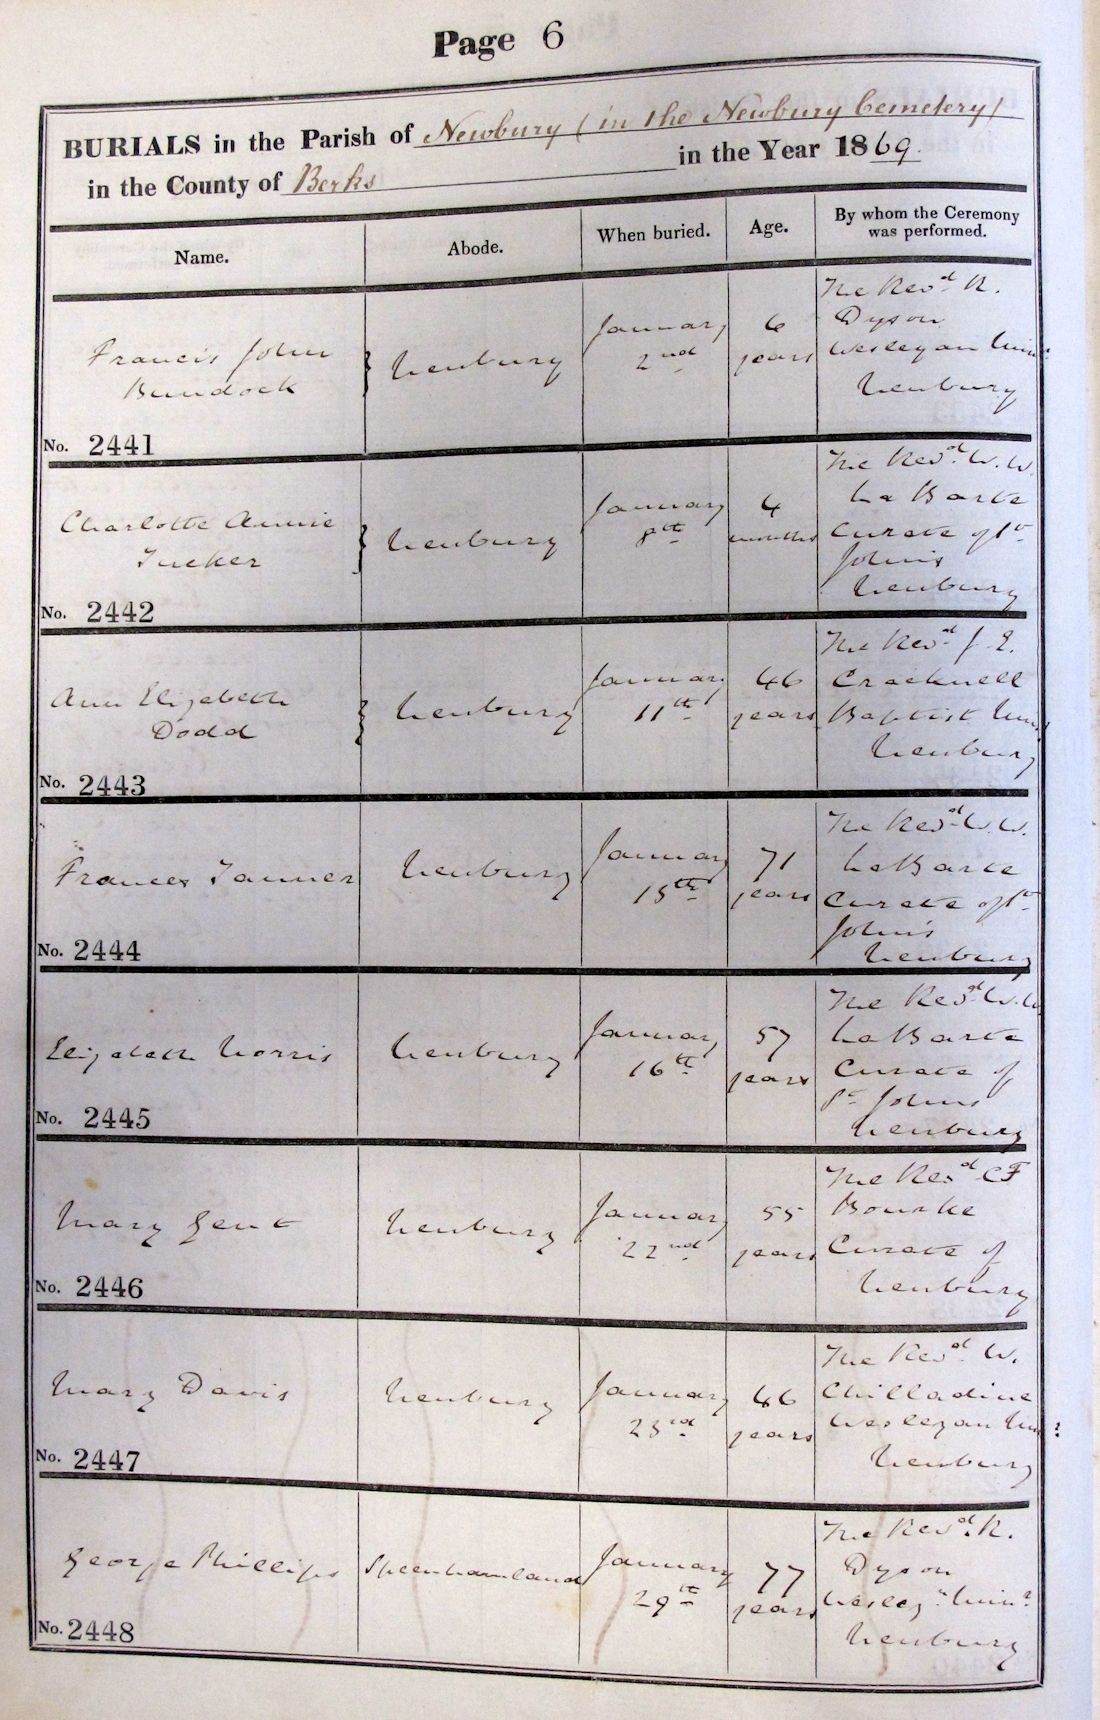 Page 6
BURIALS in the Parish of Newbury (in the Newbury Cemetery)
in the County of Berks in the Year 1869.
Name. Abode. When buried. Age. By whom the Ceremony was performed.
Francis John
Bundock
Newbury
January
2nd
6
years
The Revd R.
Dyson
Wesleyan Minr
Newbury
No. 2441
Charlotte Annie
Tucker
Newbury
January
8th
4
months
The Revd W. W.
La Barte
Curate of St
John's
Newbury
No. 2442
Ann Elizabeth
Dodd
Newbury
January
11th
46
years
The Revd J. E.
Cracknell
Baptist Minr
Newbury
No. 2443
Frances Tanner
Newbury
January
15th
71
years
The Revd W. W.
LaBarte
Curate of St
John's
Newbury
No. 2444
Elizabeth Norris
Newbury
January
16th
57
years
The Revd W. W.
LaBarte
Curate of
St Johns
Newbury
No. 2445
Mary Gent
Newbury
January
22nd
55
years
The Revd C F
Bourke
Curate of
Newbury
No. 2446
Mary Davis
Newbury
January
23rd
46
years
The Revd W.
Chilladine
Wesleyan Minr
Newbury
No. 2447
George Phillips
Speenhamland
January
29th
77
years
The Revd R.
Dyson
Wesleyn Minr
Newbury
No. 2448